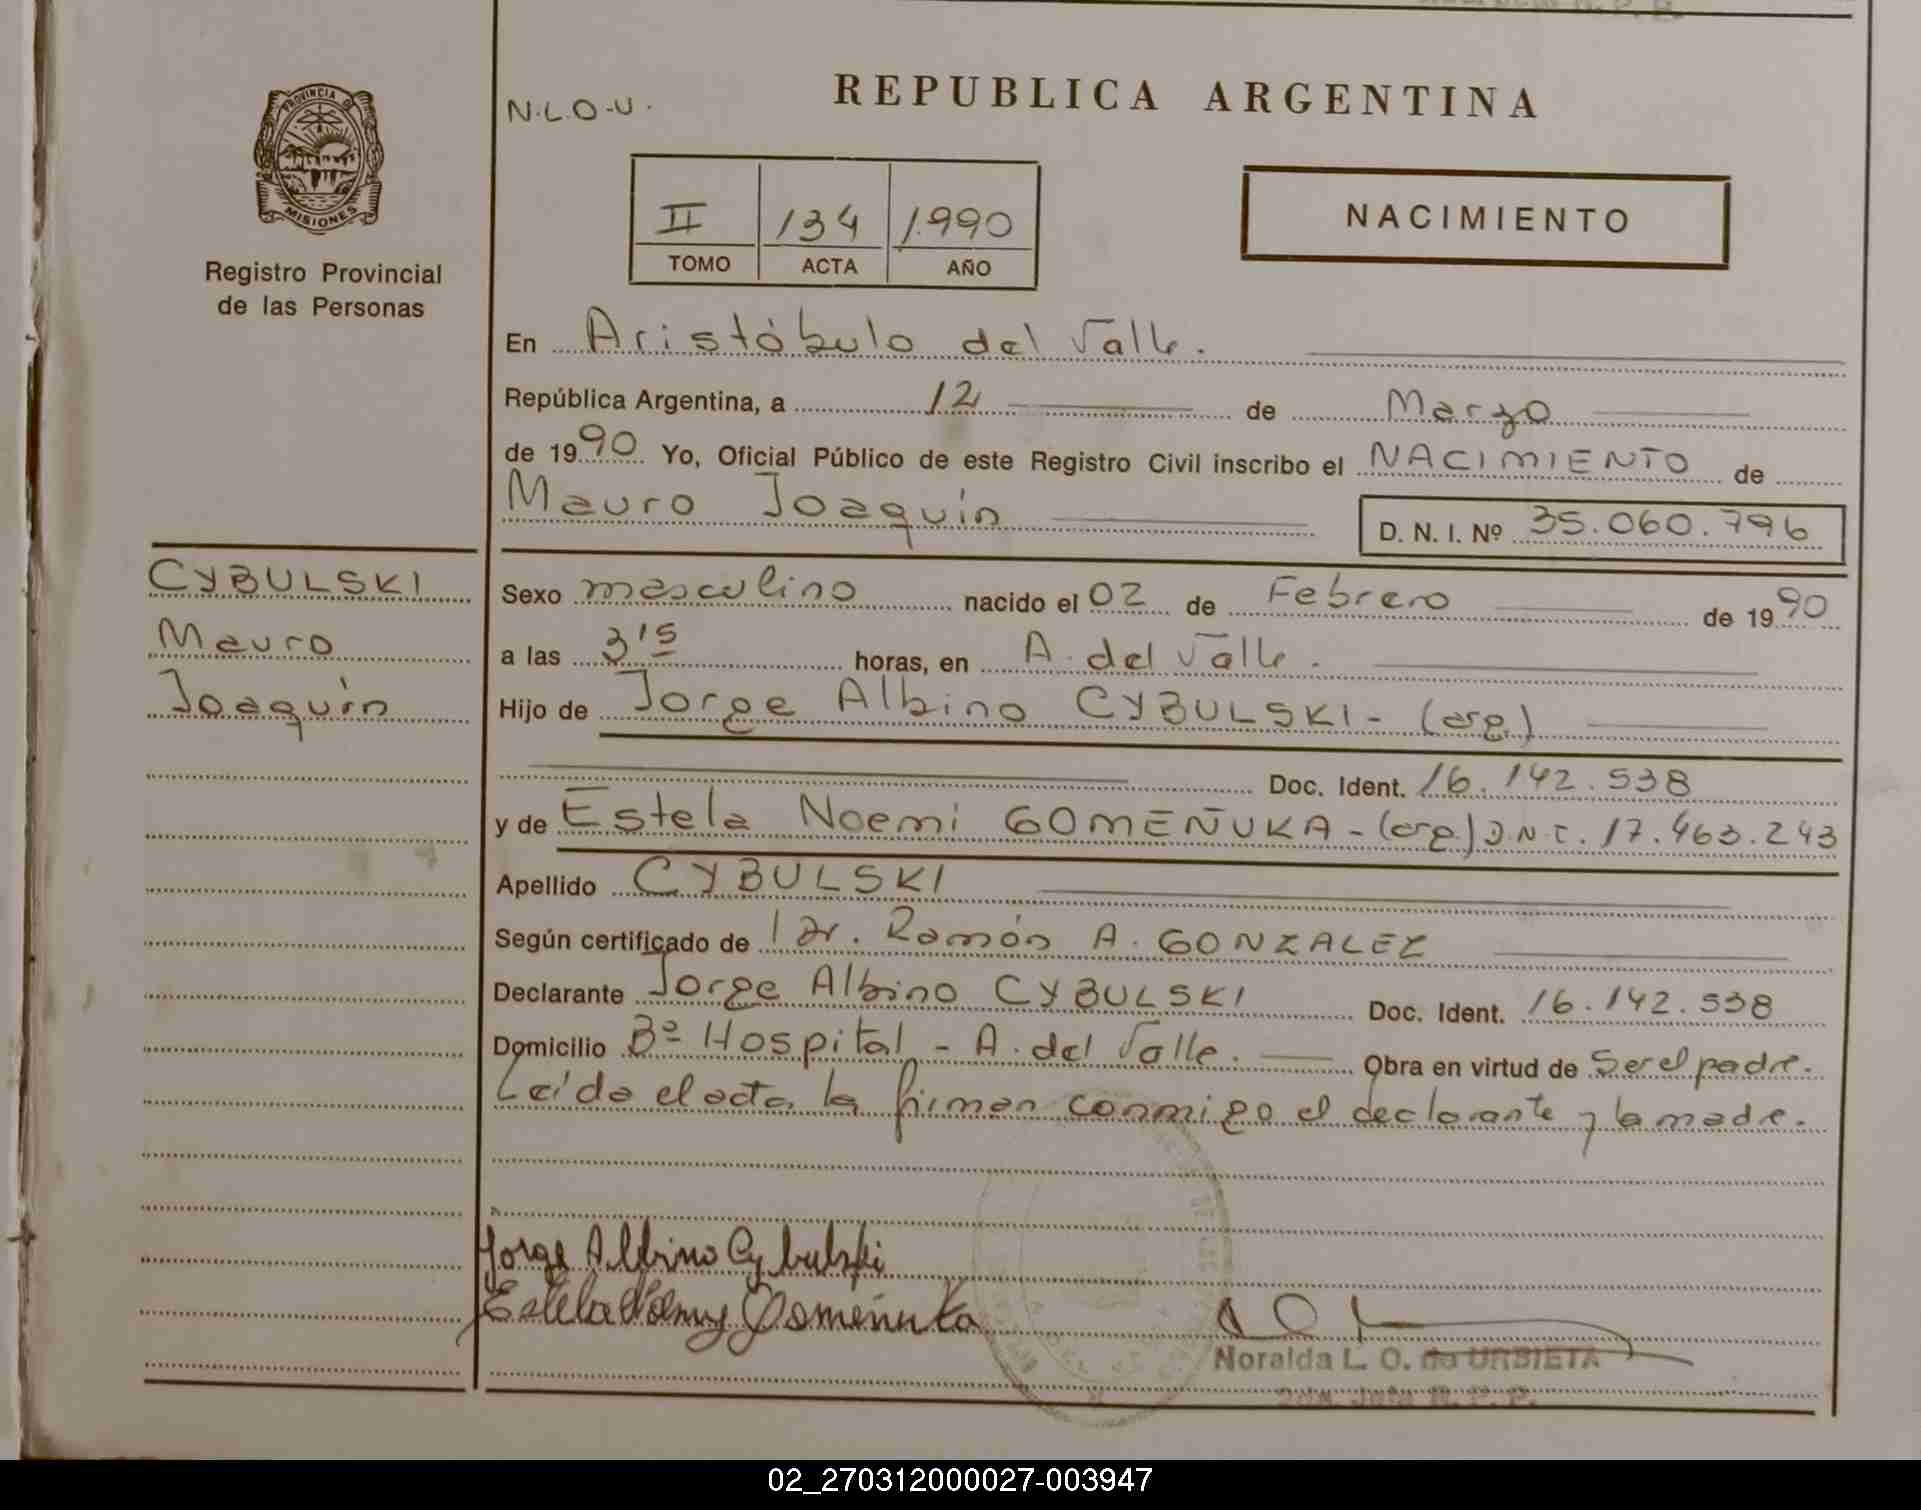 PROVINCIA D
MISIONES
Registro Provincial
de las Personas
CYBULSKI
Mauro
Joaquín
N.L.O-U.
REPUBLICA ARGENTINA
II 134 1.990
TOMO ACTA AÑO
NACIMIENTO
En Aristóbulo del Valle.
República Argentina, a 12 de Marzo
de 1990 Yo, Oficial Público de este Registro Civil inscribo el NACIMIENTO de
Mauro Joaquín D. N. I. Nº 35.060.796
Sexo masculino nacido el 02 de Febrero de 1990
a las 3'15 horas, en A. del Valle.
Hijo de Jorge Albino CYBULSKI - (arg.)
Doc. Ident. 16.142.538
y de Estela Noemi GOMEÑUKA - (arg.) D.N.I. 17.463.243
Apellido CYBULSKI
Según certificado de l Dr. Ramón A. GONZALEZ
Declarante Jorge Albino CYBULSKI Doc. Ident. 16.142.538
Domicilio Bº Hospital - A. del Valle. Obra en virtud de Ser el padre.
Leída el acta, la firman conmigo el declarante y la madre.
Jorge Albino Cybulski
Estela Noemy Gomeñuka
Noralda L. O. de URBIETA
R. P. P.
02_270312000027-003947